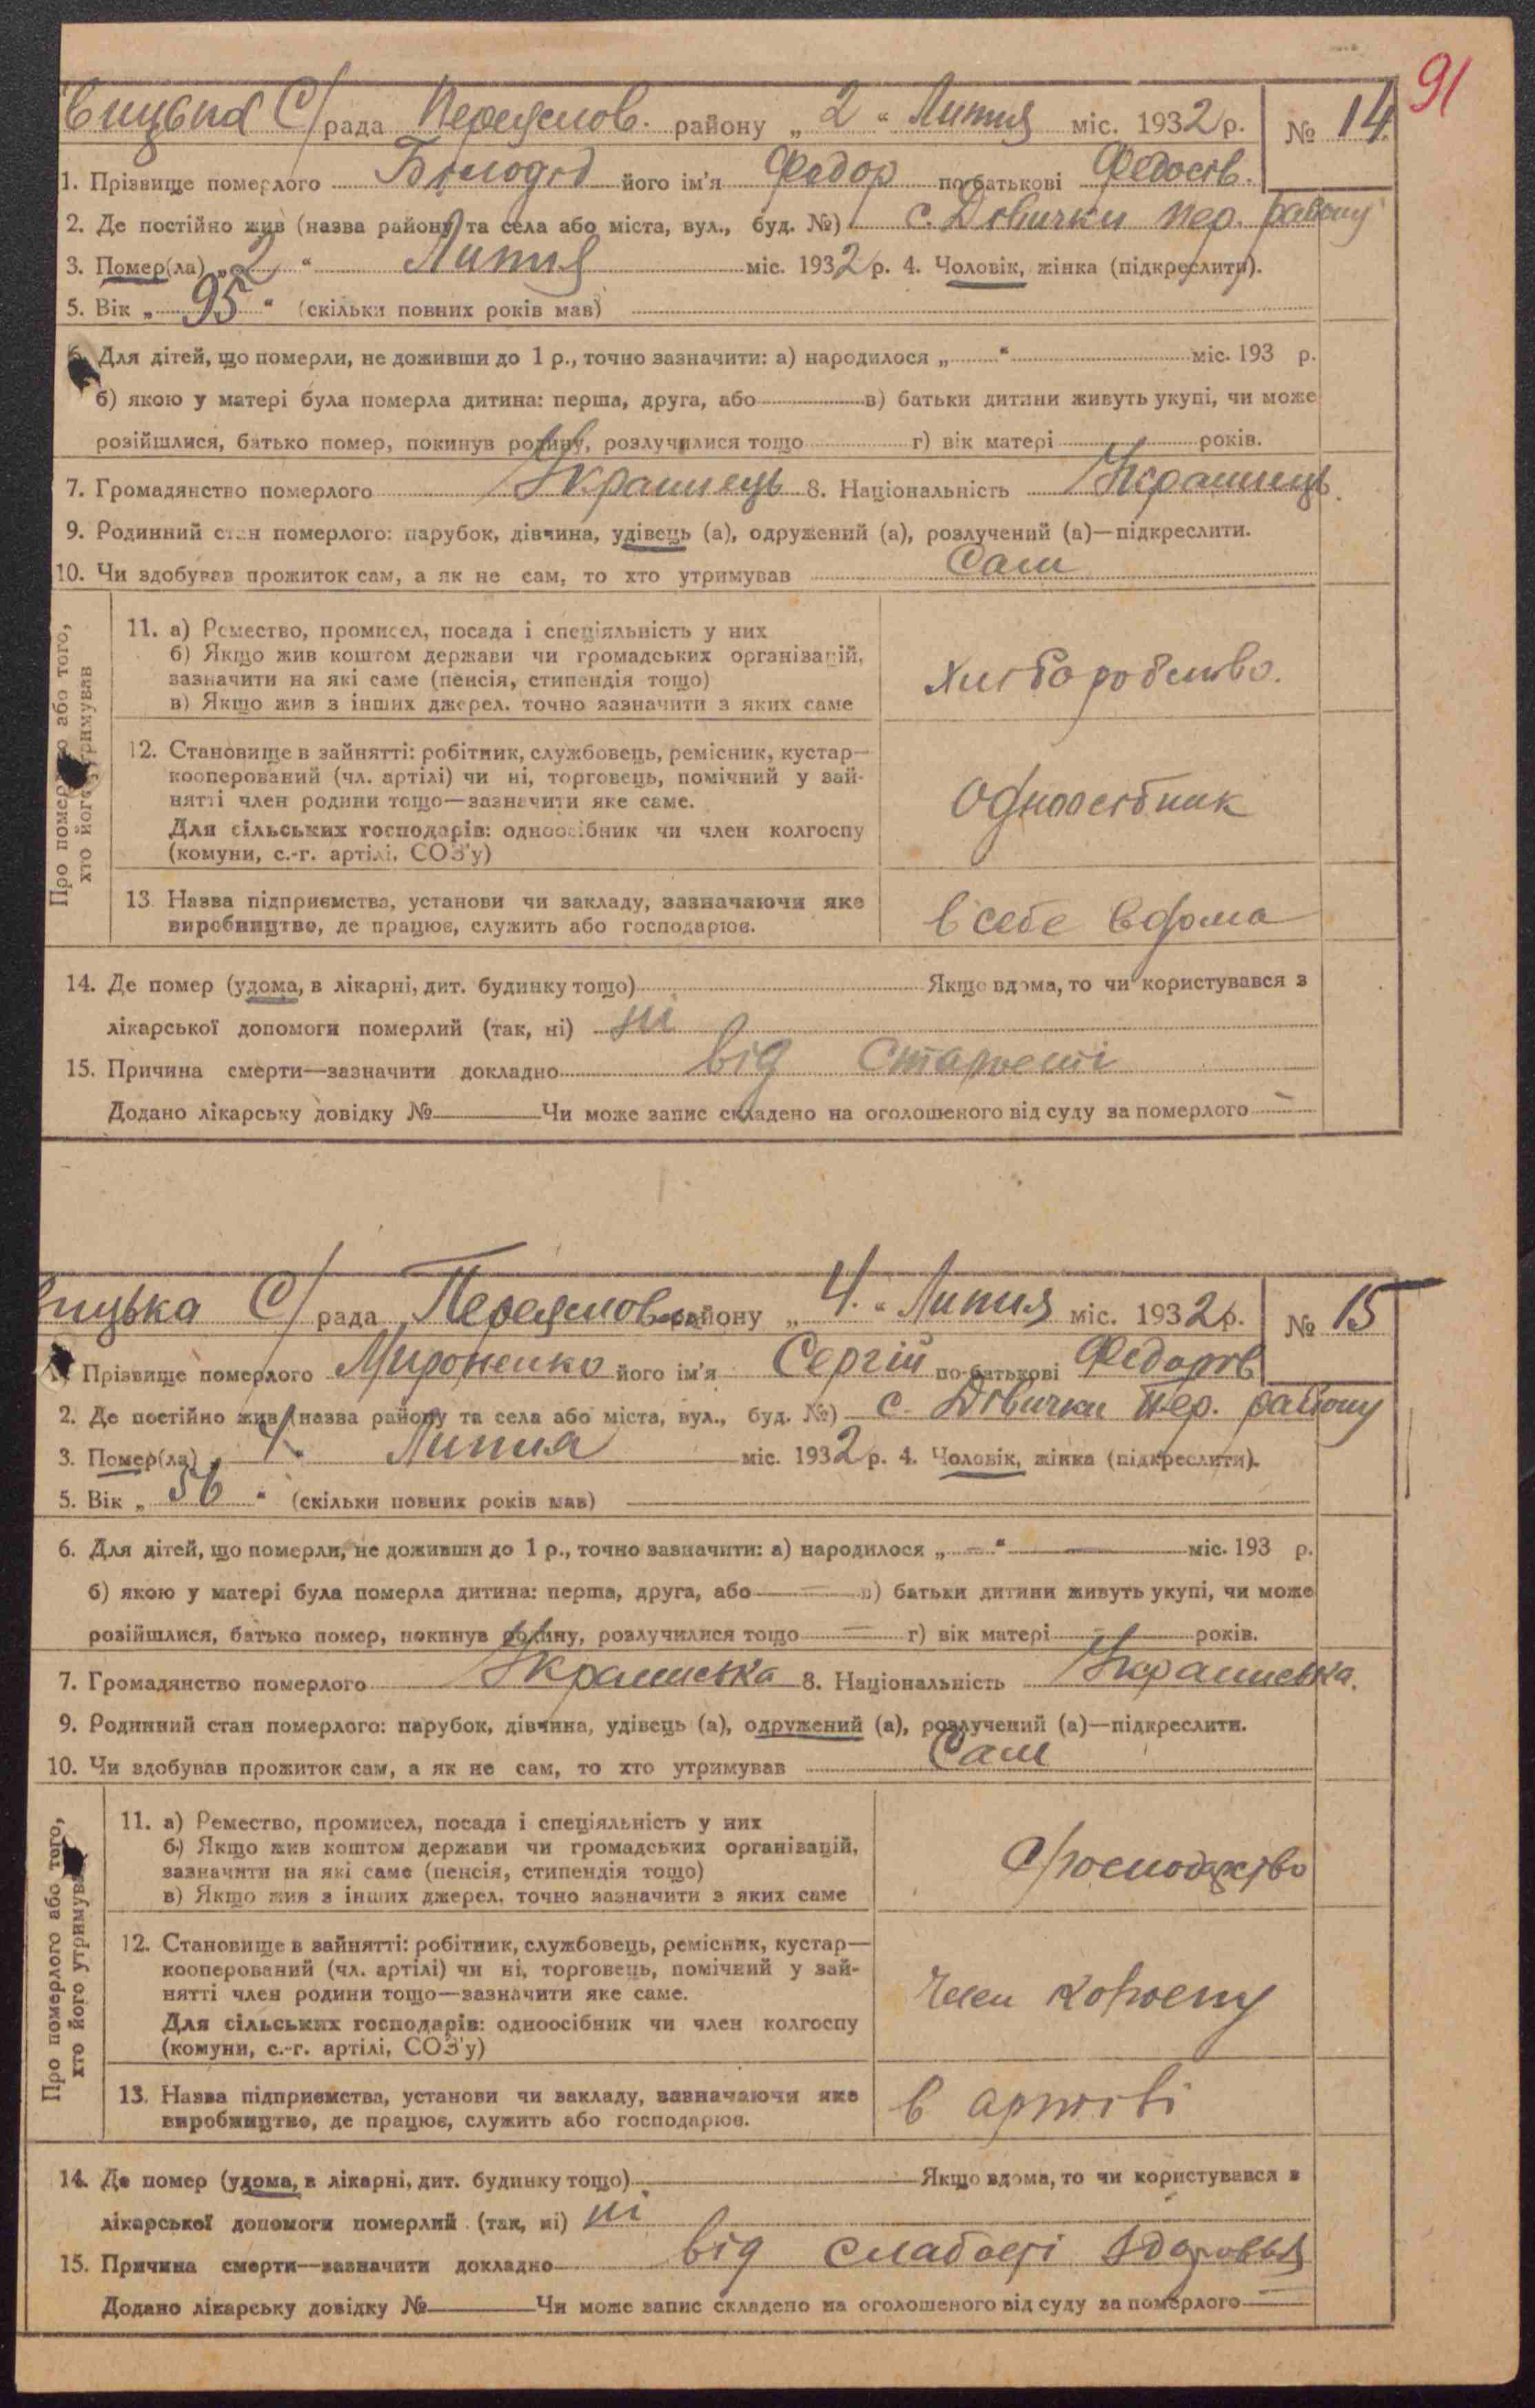 91
вицька С/рада Переяслов. району „2" Липня міс. 1932 р. № 14
1. Прізвище померлого Білодід його ім'я Федор по батькові Федосів.
2. Де постійно жив (назва району та села або міста, вул., буд. №) с. Дівички Пер. району
3. Помер(ла) „2" Липня міс. 1932 р. 4. Чоловік, жінка (підкреслити).
5. Вік „95" (скільки повних років мав)
6. Для дітей, що померли, не доживши до 1 р., точно зазначити: а) народилося „ " міс. 193 р.
б) якою у матері була померла дитина: перша, друга, або в) батьки дитини живуть укупі, чи може
розійшлися, батько помер, покинув родину, розлучилися тощо г) вік матері років.
7. Громадянство померлого Українець 8. Національність Українець.
9. Родинний стан померлого: парубок, дівчина, удівець (а), одружений (а), розлучений (а)—підкреслити.
10. Чи здобував прожиток сам, а як не сам, то хто утримував Сам
Про померлого або того,
хто його утримував
11. а) Ремество, промисел, посада і спеціяльність у них
б) Якщо жив коштом держави чи громадських організацій,
зазначити на які саме (пенсія, стипендія тощо)
в) Якщо жив з інших джерел, точно зазначити з яких саме
Хліборобство.
12. Становище в зайнятті: робітник, службовець, ремісник, кустар—
кооперований (чл. артілі) чи ні, торговець, помічний у зай-
нятті член родини тощо—зазначити яке саме.
Для сільських господарів: одноосібник чи член колгоспу
(комуни, с.-г. артілі, СОЗ'у)
Одноосібник
13. Назва підприємства, установи чи закладу, зазначаючи яке
виробництво, де працює, служить або господарює.
В себе вдома
14. Де помер (удома, в лікарні, дит. будинку тощо) Якщо вдома, то чи користувався з
лікарської допомоги померлий (так, ні) ні
15. Причина смерти—зазначити докладно від старості
Додано лікарську довідку № Чи може запис складено на оголошеного від суду за померлого —
вицька С/рада Переяслов району „4" Липня міс. 1932 р. № 15
1. Прізвище померлого Мироненко його ім'я Сергій по-батькові Федорів
2. Де постійно жив (назва району та села або міста, вул., буд. №) с. Дівички Пер. району
3. Помер(ла) „4. Липня міс. 1932 р. 4. Чоловік, жінка (підкреслити).
5. Вік „56" (скільки повних років мав)
6. Для дітей, що померли, не доживши до 1 р., точно зазначити: а) народилося „—" — міс. 193 р.
б) якою у матері була померла дитина: перша, друга, або — в) батьки дитини живуть укупі, чи може
розійшлися, батько помер, покинув родину, розлучилися тощо — г) вік матері — років.
7. Громадянство померлого Українська 8. Національність Українська.
9. Родинний стан померлого: парубок, дівчина, удівець (а), одружений (а), розлучений (а)—підкреслити.
10. Чи здобував прожиток сам, а як не сам, то хто утримував Сам
Про померлого або того,
хто його утримував
11. а) Ремество, промисел, посада і спеціяльність у них
б) Якщо жив коштом держави чи громадських організацій,
зазначити на які саме (пенсія, стипендія тощо)
в) Якщо жив з інших джерел, точно зазначити з яких саме
12. Становище в зайнятті: робітник, службовець, ремісник, кустар—
кооперований (чл. артілі) чи ні, торговець, помічний у зай-
нятті член родини тощо—зазначити яке саме.
Для сільських господарів: одноосібник чи член колгоспу
(комуни, с.-г. артілі, СОЗ'у)
Член колгоспу
13. Назва підприємства, установи чи закладу, зазначаючи яке
виробництво, де працює, служить або господарює.
в артілі
14. Де помер (удома, в лікарні, дит. будинку тощо) Якщо вдома, то чи користувався з
лікарської допомоги померлий (так, ні) ні
15. Причина смерти—зазначити докладно від слабості здоровья
Додано лікарську довідку № Чи може запис складено на оголошеного від суду за померлого —